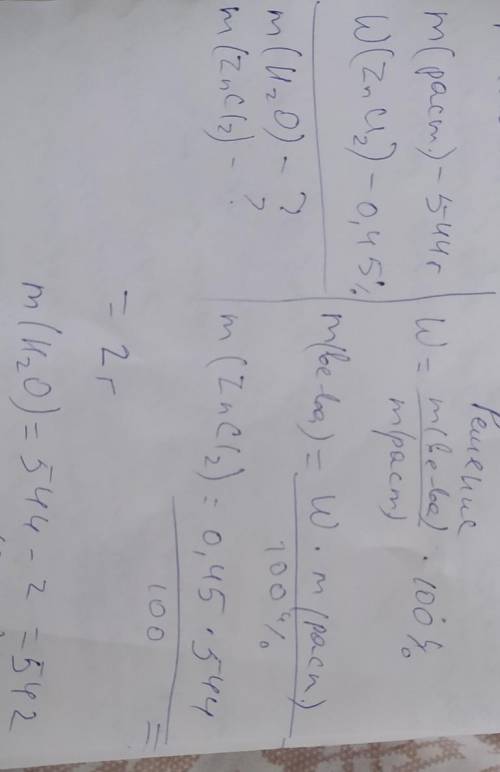 m(раст.) - 544г
W(ZnCl2) - 0,45%
m(H2O) - ?
m(ZnCl2) - ?
Решение
W = m(ве-ва) / m(раст) · 100%
m(ве-ва) = W · m(расп.) / 100%
m(ZnCl2) = 0,45 · 544 / 100 =
= 2г
m(H2O) = 544 - 2 = 542